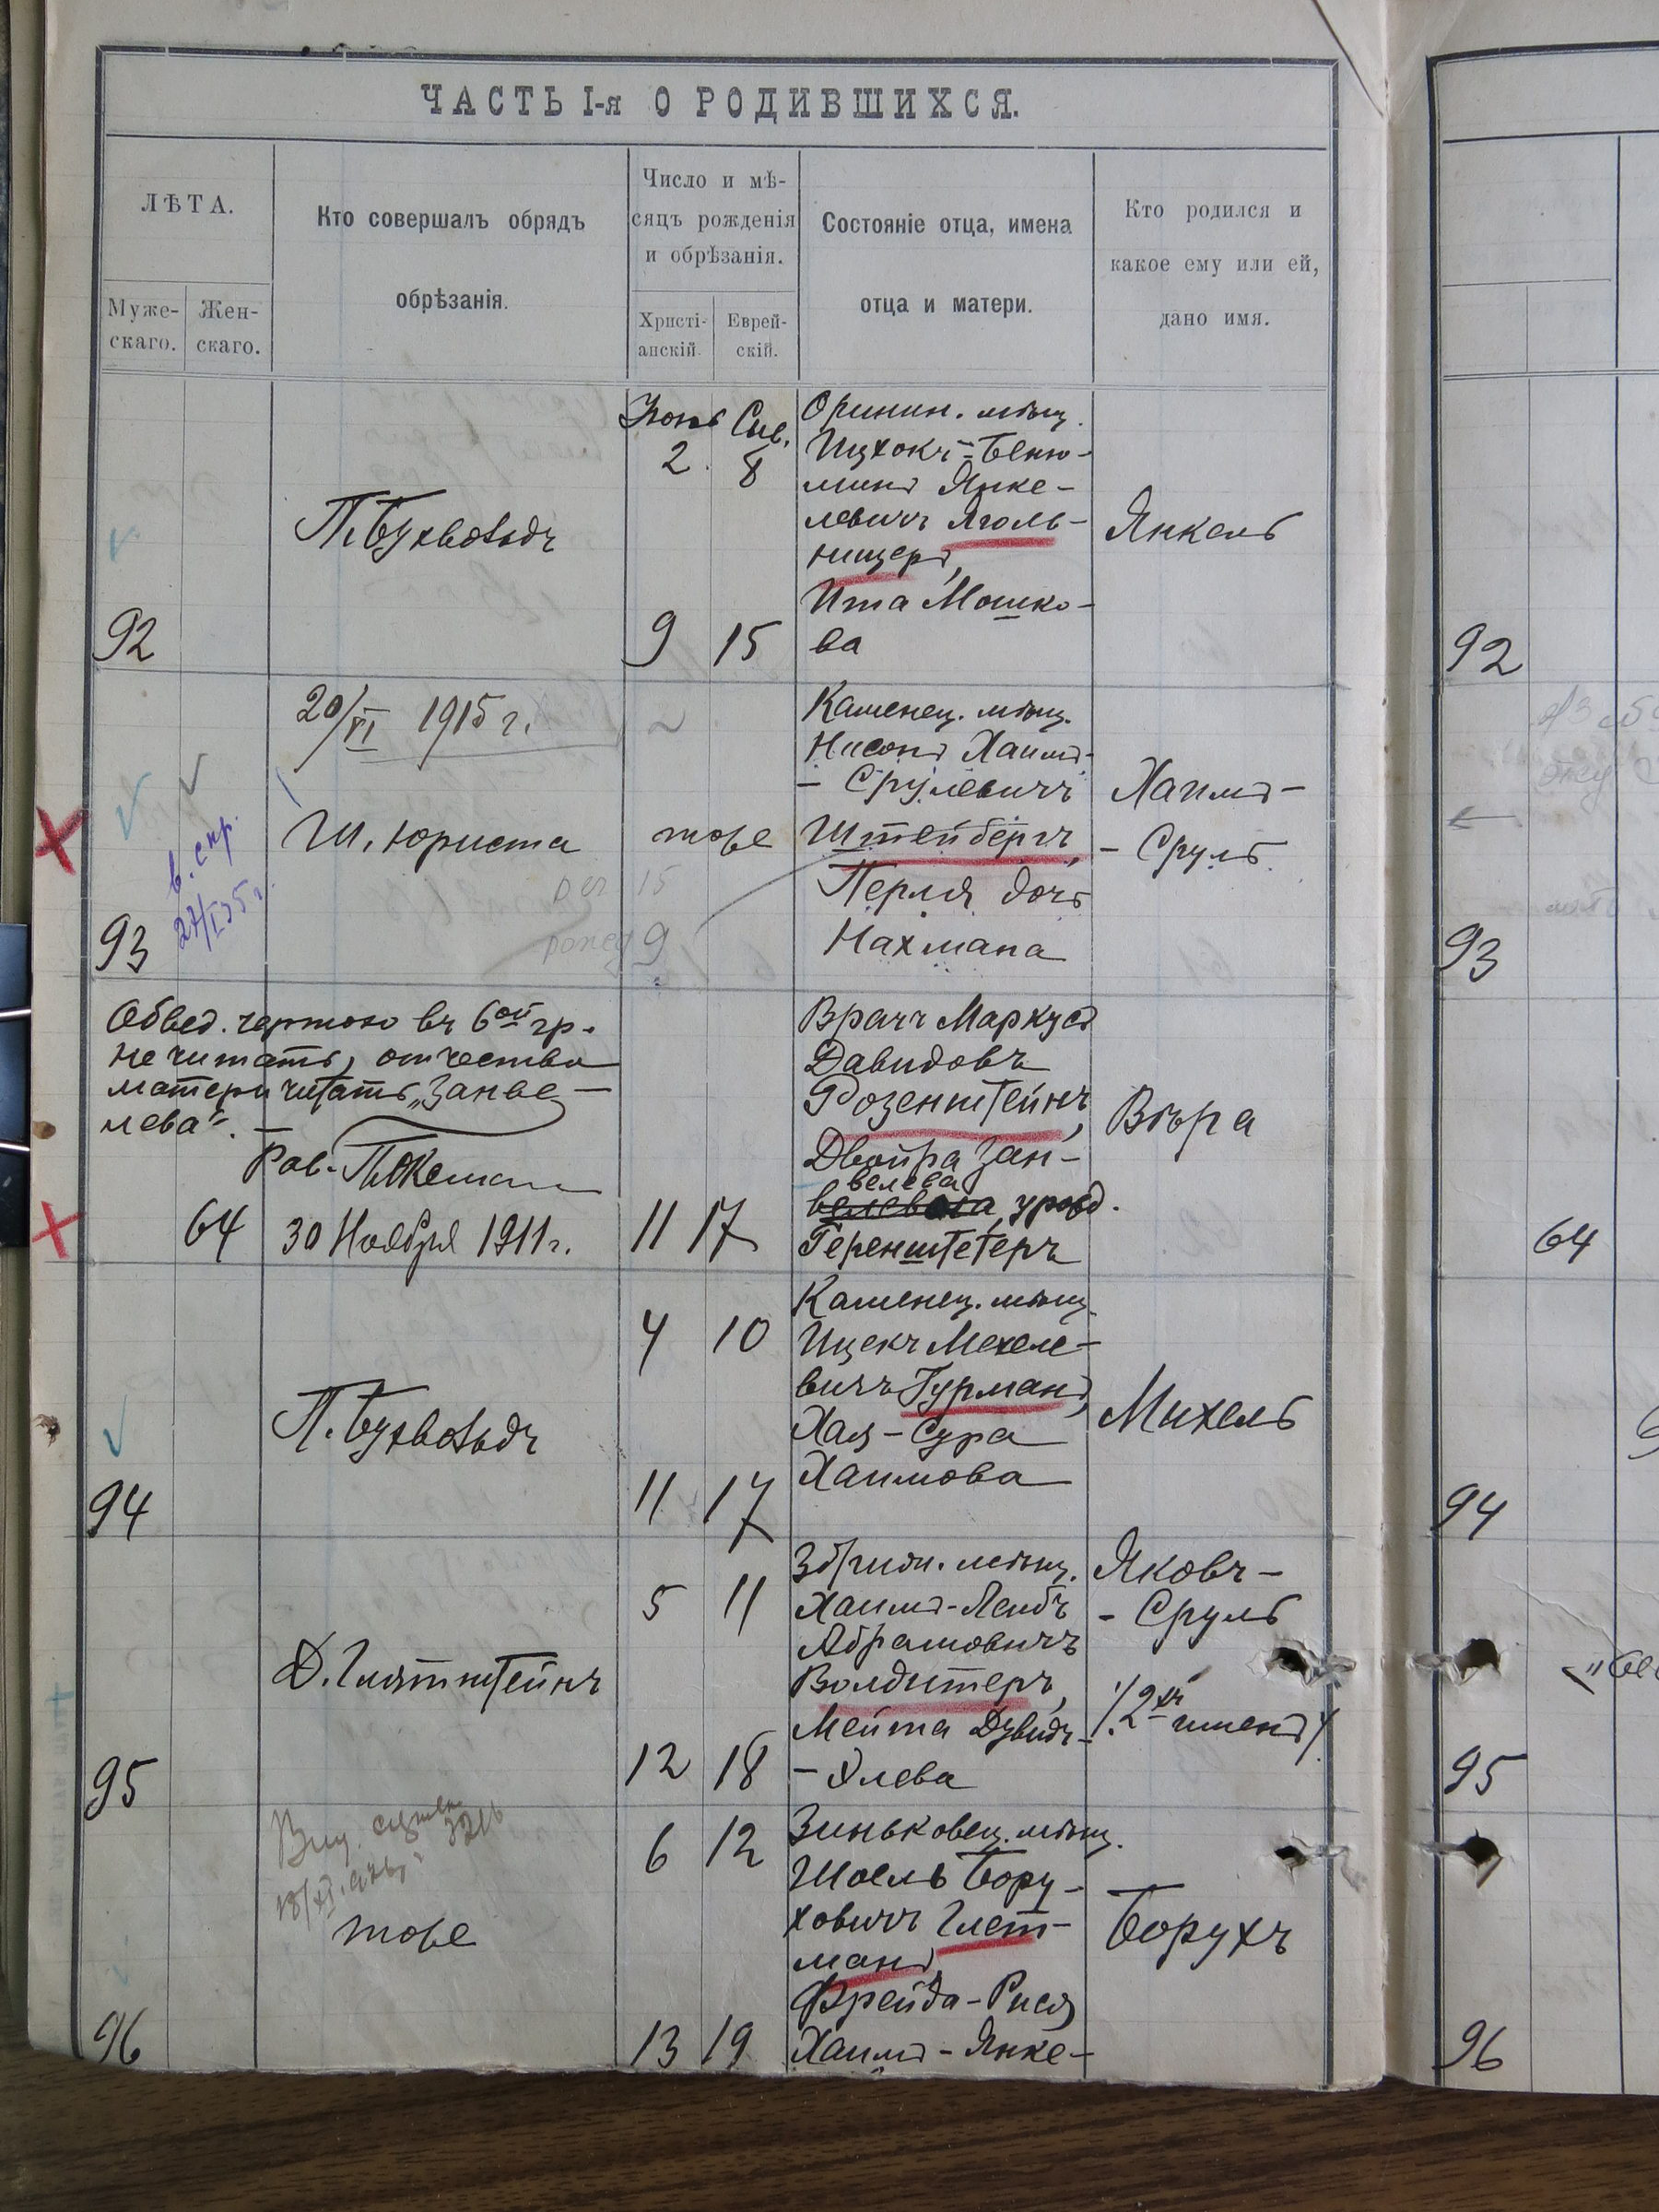 ЧАСТЬ I-я О РОДИВШИХСЯ.
ЛѢТА.
Муже-
скаго.
Жен-
скаго.
Кто совершалъ обрядъ
обрѣзанія.
Число и мѣ-
сяцъ рожденія
и обрѣзанія.
Христі-
анскій.
Еврей-
скій.
Состояніе отца, имена
отца и матери.
Кто родился и
какое ему или ей,
дано имя.
92
П. Буквовъдъ
Сив.
2. 8
9 15
Оринин. мѣщ.
Ицхокъ-Беню-
минъ Янке-
левичъ Яголь-
ницеръ,
Ита Мошко-
ва
Янкель
92
93
в. скр.
20/VI 1915 г.
Ш. Юриста
тоже
15
9
Каменец. мѣщ.
Нисонъ Хаимъ-
- Срулевичъ
Штейнбергъ,
Перля дочь
Нахмана
Хаимъ-
- Сруль
93
Обвед. чертою въ 6ой гр.
не читать, отчество
матери читать „Занве-
лева“. —
Рав.
64
30 Ноября 1911 г.
11 17
Врачъ Маркусъ
Давидовъ
Розенштейнъ,
Двойра Зан-
велева
урожд.
Геренштетеръ
Вѣра
64
94
П. Буквовъдъ
4 10
11 17
Каменец. мѣщ.
Ицекъ Мехеле-
вичъ Гурманъ,
Хая-Сура
Хаимова
Михель
94
95
Д. Глятштейнъ
5 11
12 18
мѣщ.
Хаимъ-Лейбъ
Абрамовичъ
Мейта Дувидъ-
- Элева
Яковъ-
- Сруль
/2хъ именъ/
95
96
тоже
6 12
13 19
Зиньковец. мѣщ.
Шоель Бору-
ховичъ Глет-
манъ,
Фрейда-Рися
Хаимъ-Янке-
Борухъ
96